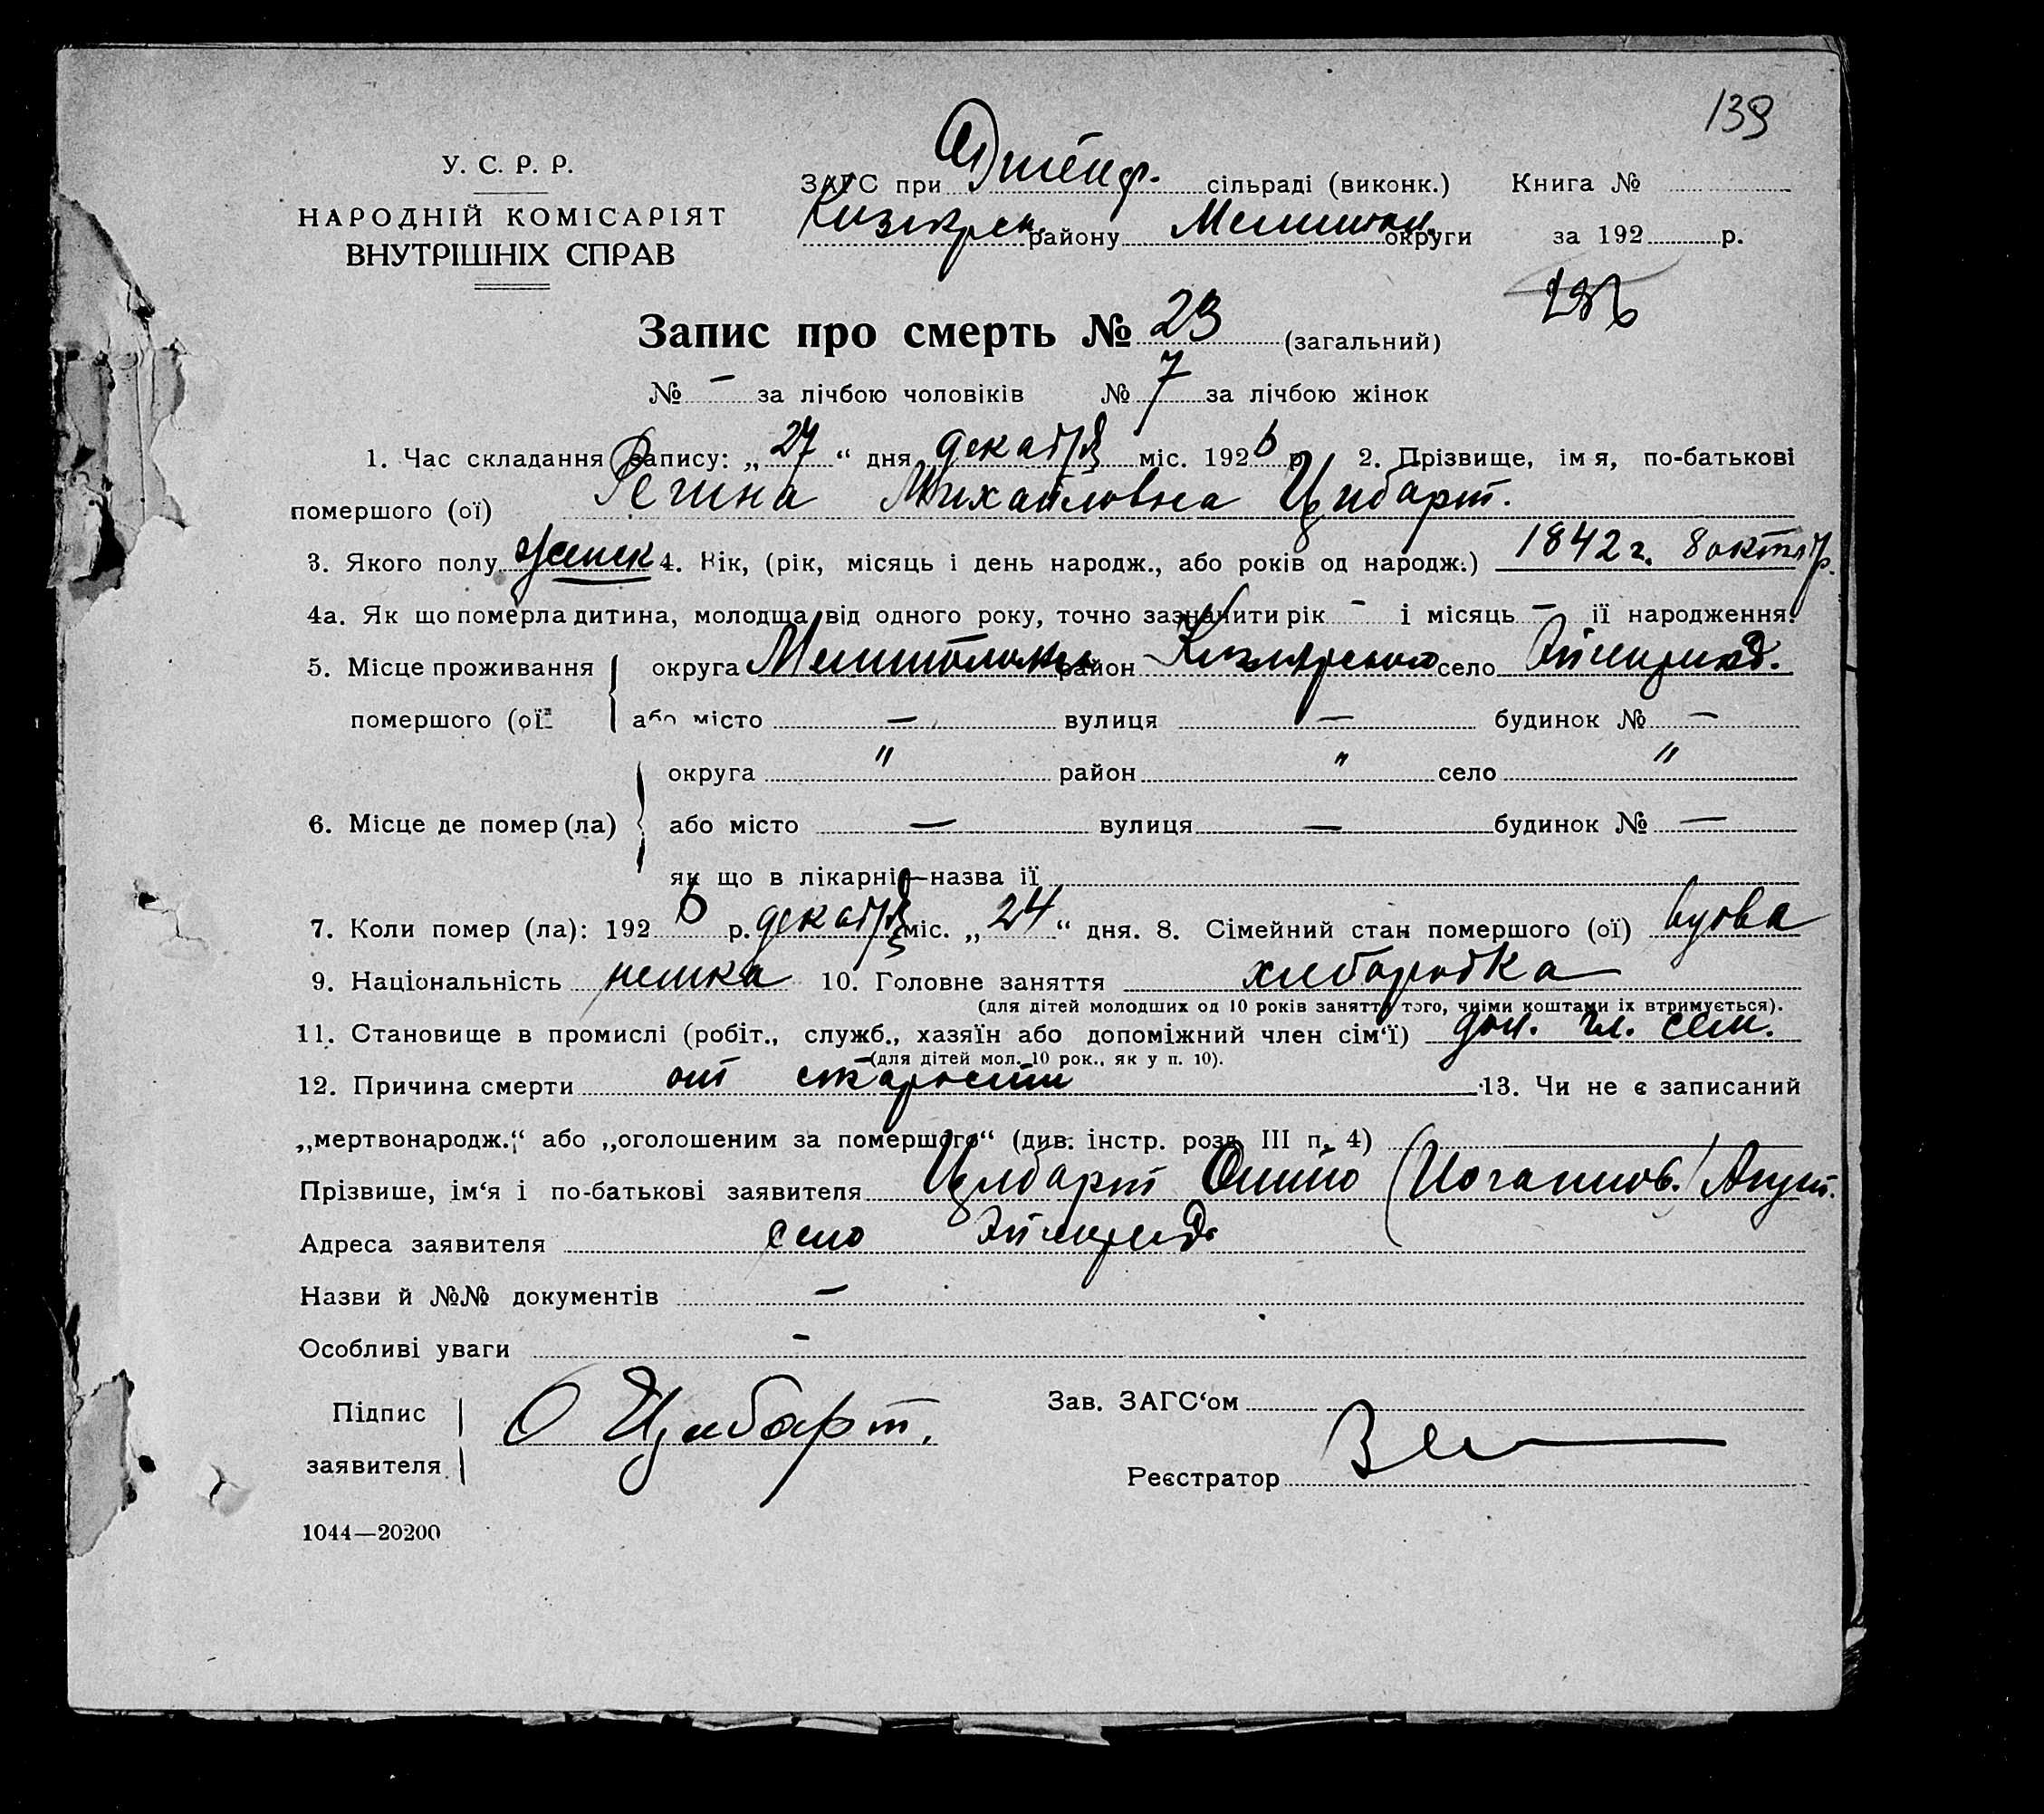 139
У. С. Р. Р.
НАРОДНІЙ КОМІСАРІЯТ
ВНУТРІШНІХ СПРАВ
ЗАГС при сільраді (виконк.) Книга №
району округи за 192 р.
Запис про смерть № 23 (загальний)
№ — за лічбою чоловіків № 7 за лічбою жінок
1. Час складання запису: „27“ дня декабря міс. 1926 р. 2. Прізвище, імя, по-батькові
помершого (ої) Регина Михайловна Цибарт.
3. Якого полу женск 4. Вік, (рік, місяць і день народж., або років од народж.) 1842 г. 8 октябр.
4а. Як що померла дитина, молодща від одного року, точно зазначити рік — і місяць — її народження.
5. Місце проживання округа район село
помершого (ої) або місто — вулиця — будинок № —
округа " район " село "
6. Місце де помер (ла) або місто — вулиця — будинок № —
як що в лікарні—назва ії
7. Коли помер (ла): 1926 р. декабря міс. „24“ дня. 8. Сімейний стан помершого (ої) вдова
9. Національність немка 10. Головне заняття хлеборобка
(для дітей молодших од 10 років заняття того, чиїми коштами їх втримується).
11. Становище в промислі (робіт., служб., хазяїн або допоміжний член сім‘ї) чл. сем.
(для дітей мол. 10 рок., як у п. 10).
12. Причина смерти от старости 13. Чи не є записаний
„мертвонародж.“ або „оголошеним за помершого“ (див. інстр. розд. III п. 4)
Прізвище, ім‘я і по-батькові заявителя Цибарт Отто (Иоганнов.)
Адреса заявителя село
Назви й №№ документів —
Особливі уваги —
Підпис О Цибарт. Зав. ЗАГС‘ом
заявителя Реєстратор
1044—20200